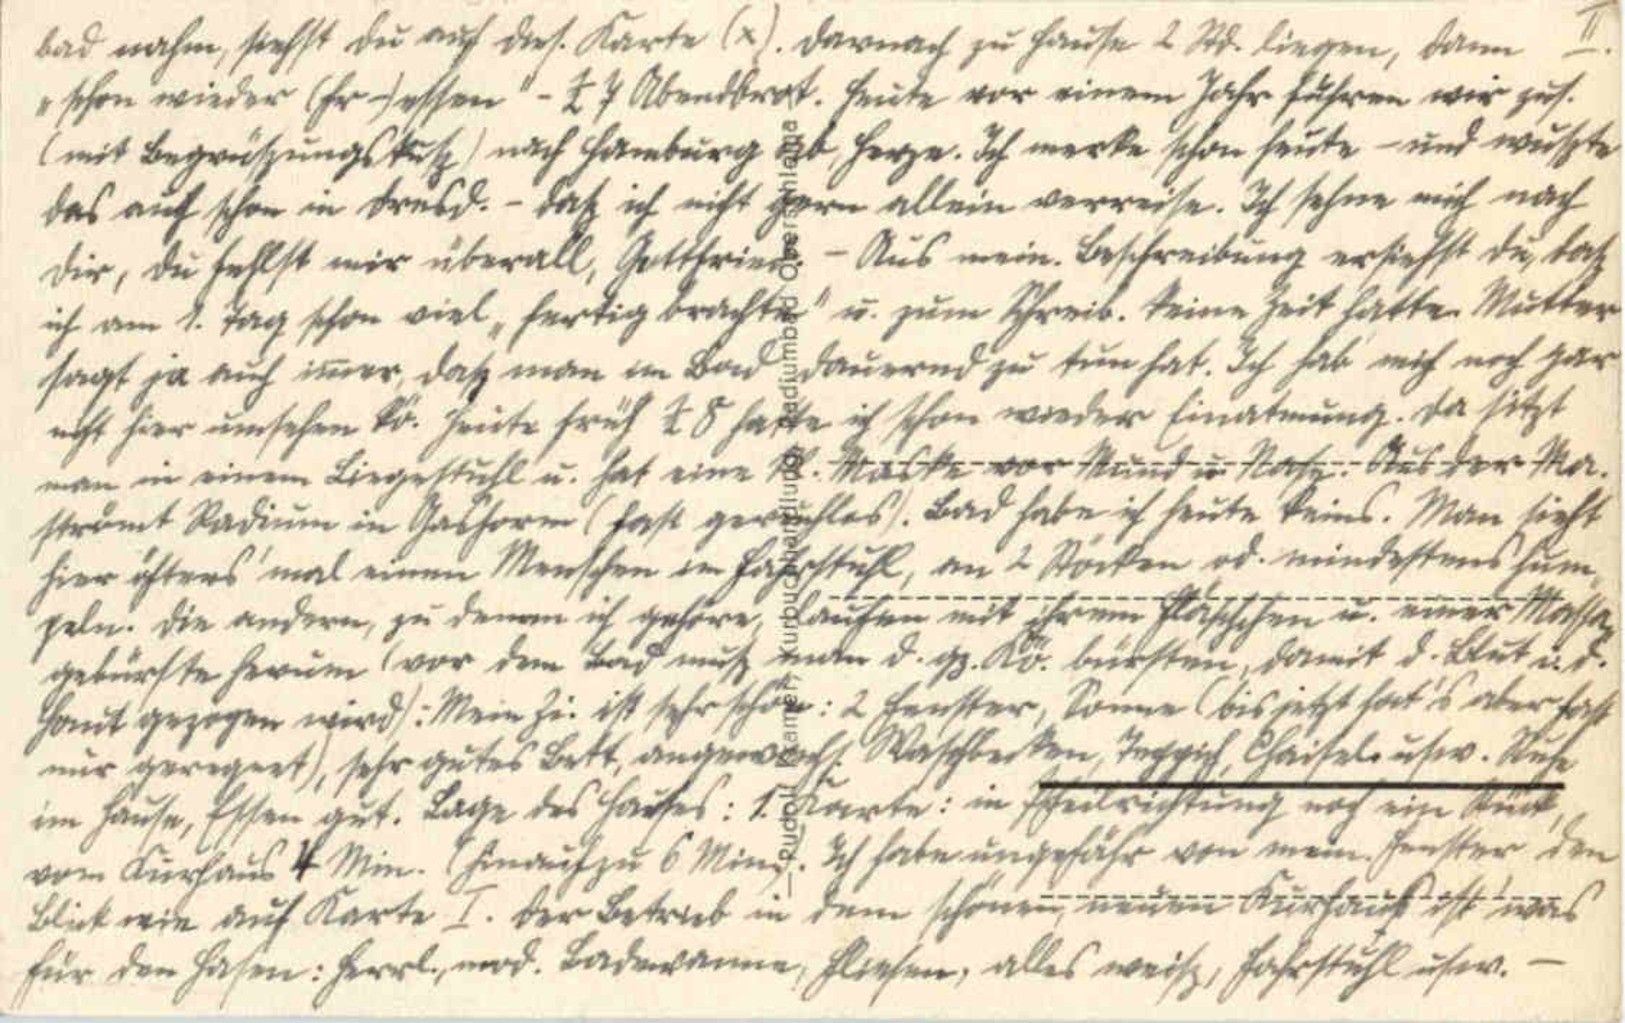 II.
bad nahm, siehst du auf dies. Karte (x). Darnach zu Hause 2 Std. liegen, dann
"schon wieder (Fr-)essen" - ½ 7 Abendbrot. Heute vor einem Jahr fuhren wir zus.
(mit Begrüszungskusz) nach Hamburg ab, Herze. Ich merke schon heute - und wuszte
das auch schon in Dresd. - dasz ich nicht gern allein verreise. Ich sehne mich nach
Dir, Du fehlst mir überall, Gottfried. - Aus mein. Beschreibung ersiehst du, dasz
ich am 1. Tag schon viel "fertig brachte" u. zum Schreib. keine Zeit hatte. Mutter
sagt ja auch immer, dasz man im Bad dauernd zu tun hat. Ich hab' mich noch gar
nicht hier umsehen kö. Heute früh ½ 8 hatte ich schon wieder Einatmung. Da sitzt
man in einem Liegestuhl u. hat eine Maske vor Mund u. Nase. Aus der Ma.
strömt Radium in Gasform (fast geruchlos). Bad habe ich heute keins. Man sieht
hier öfters mal einen Menschen im Fahrstuhl, an 2 Stöcken od. mindestens hum-
peln. Die andern, zu denen ich gehöre, laufen mit ihrem Fläschchen u. einer Massa-
gebürste herum (vor dem Bad musz man d. gz. Kö. bürsten, damit d. Blut i. d.
Haut gezogen wird): Mein Zi. ist sehr schön: 2 Fenster, Sonne (bis jetzt hat's aber fast
nur geregnet), sehr gutes Bett, angewachs. Waschbecken, Teppich, Chaisel. usw. Ruhe
im Hause, Essen gut. Lage des Hauses: 1. Karte: in Pfeilrichtung noch ein Stück,
vom Kurhaus 4 Min. (hinaufzu 6 Min.). Ich habe ungefähr von mein. Fenster den
Blick wie auf Karte I. Der Betrieb in dem schönen, neuen Kurhaus ist was
für den Hasen: Herrl., mod. Badewanne, Fliesen, alles weisz, Fahrstuhl usw. -
Rudolf Kramer, Kurbuchhandlung, Radiumbad Oberschlema